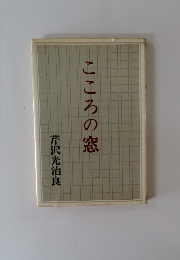 こころの窓
芹沢光治良